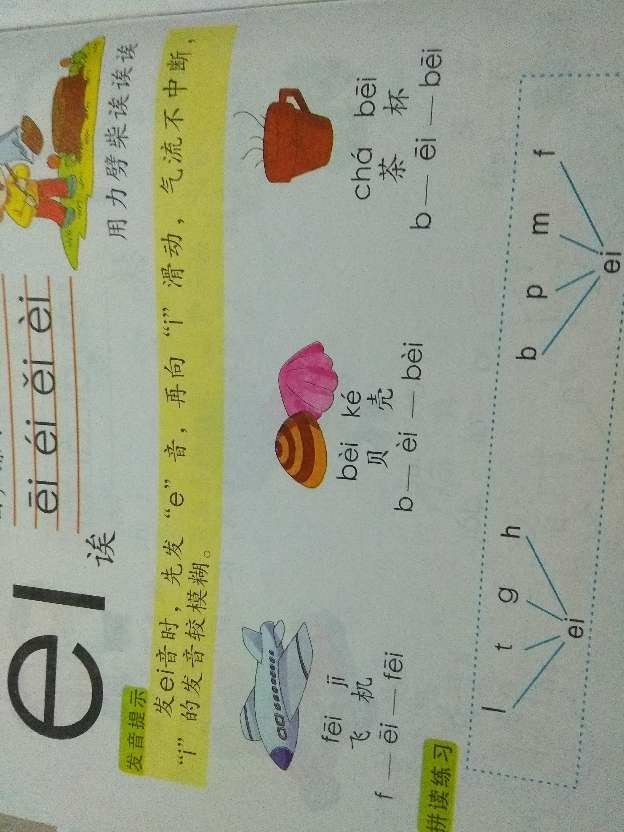 ei
诶
ēi éi ěi èi
用力劈柴诶诶诶
发音提示
发ei音时，先发“e”音，再向“i”滑动，气流不中断，
“i”的发音较模糊。
fēi jī
飞机
f — ēi — fēi
bèi ké
贝壳
b — èi — bèi
chá bēi
茶杯
b — ēi — bēi
拼读练习
l t g h
ei
b p m f
ei